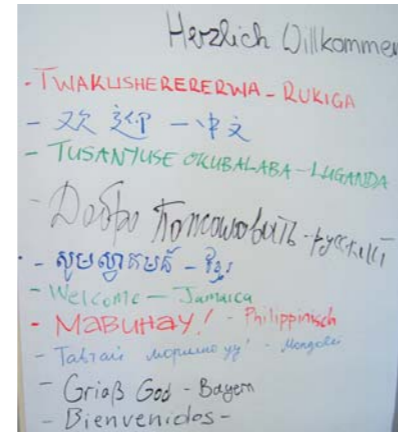 Herzlich Willkommen
- TWAKUSHERERERWA - RUKIGA
- 欢迎 - 中文
- TUSANYUSE OKUBALABA - LUGANDA
- Добро Пожаловать - русский
- សូមស្វាគមន៍ - ខ្មែរ
- Welcome - Jamaica
- MABUHAY! - Philippinisch
- Тавтай морилно уу! - Mongolei
- Griaß God - Bayern
- Bienvenidos -